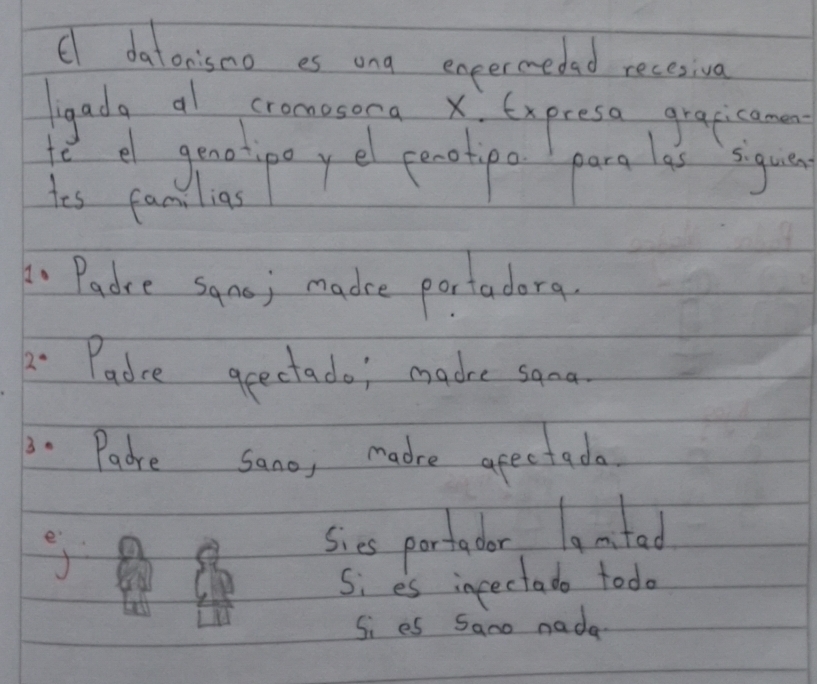 El datonismo es una enfermedad recesiva
ligada al cromosoma X. Expresa graficamen-
te el genotipo y el fenotipo para las siguien-
tes familias
1. Padre sano; madre portadora.
2. Padre afectado; madre sana.
3. Padre sano, madre afectada.
ej. Si es portador la mitad
Si es infectado todo
Si es sano nada.